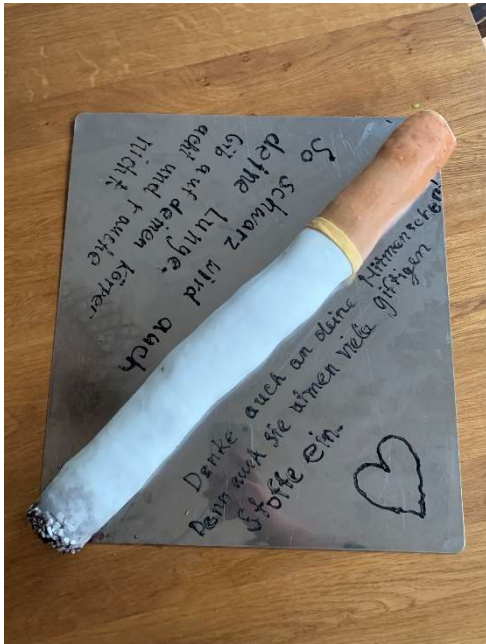 So schwarz wird auch
deine Lunge.
Gib auf deinen Körper
acht und rauche
nicht.
Denke auch an deine Mitmenschen!
Denn auch sie atmen viele giftigen
Stoffe ein.